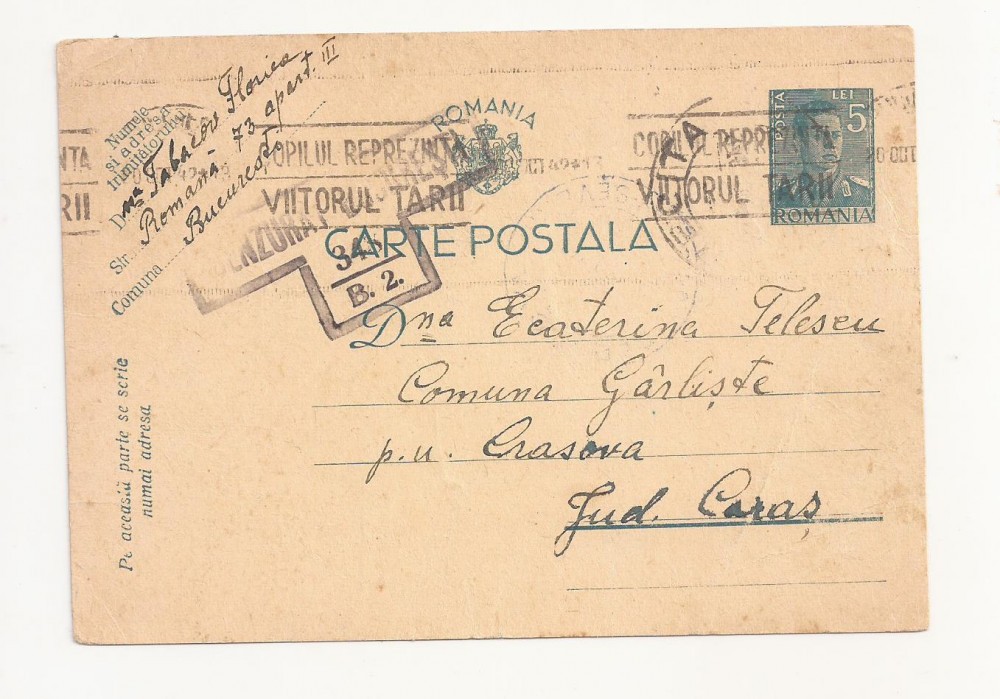 Numele
si adresa
trimițătorului
Dna Tabacov Florica
Str. Romană - 73 apart. III
Comuna București
ROMANIA
POSTA LEI 5
ROMANIA
COPILUL REPREZINTA
VIITORUL TARII
COPILUL REPREZINTA
VIITORUL TARII
INTA
RII
20 OCT
CENZURAT
B. 2.
CARTE POSTALA
Dna Ecaterina Telescu
Comuna Gârliște
p.u. Crasova
Jud. Caraș
Pe această parte se scrie
numai adresa